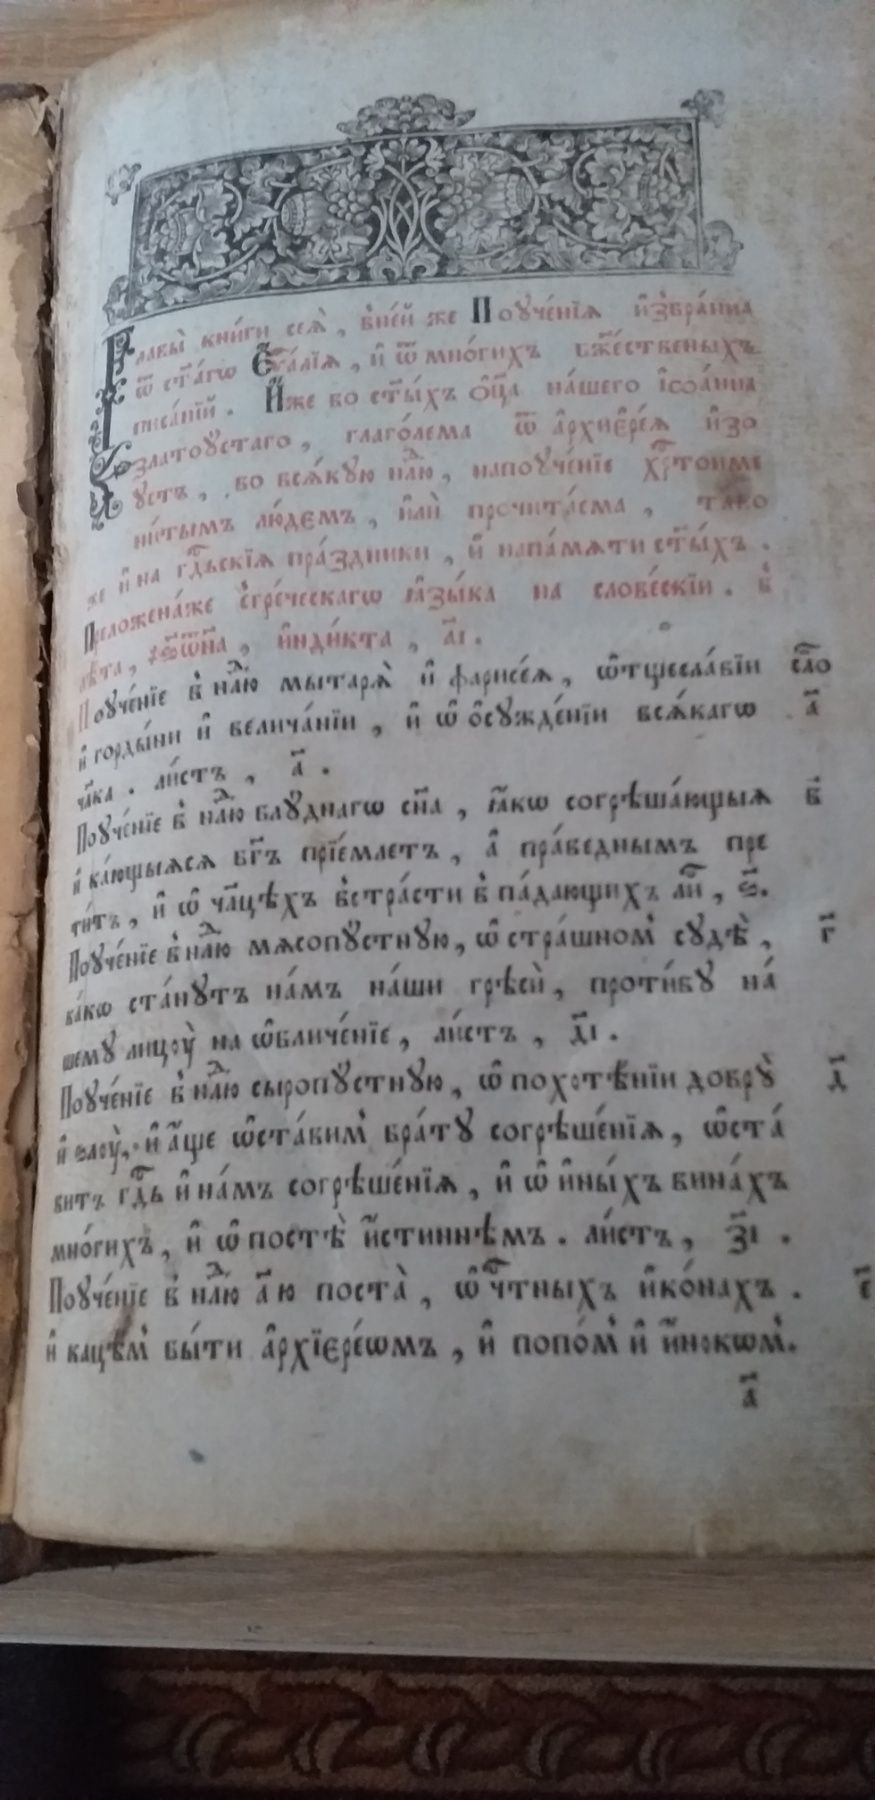 Главы̀ кни́ги сеѧ̀, в̾не́й же Поуче́нїѧ и҆збра́нна
ѿ ст҃а́гѡ Е҆ѵⷢ҇а́лїѧ, и҆ ѿ мно́гихъ бж҃е́ственыхъ
писа́нїй. И҆́же во ст҃ы́хъ ѻ҆ц҃а̀ на́шего і҆ѡа́нна
златоꙋстаго, глаго́лема ѿ а҆рхиере́ѧ и҆зо
ꙋстъ, во всѧ́кꙋю нⷣлю, напоꙋче́нїе хрⷭ҇тоиме
ни́тымъ лю́демъ, и҆лѝ прочита́ема, тако
же и҆ на гдⷭ҇ьскїѧ пра́здники, и҆ напа́мѧти ст҃ы́хъ.
Преложена́же ѿгре́ческагѡ ꙗ҆зы́ка на слове́скїи. в̾
лѣ́та, и҆нди́кта, а҃і.
Поуче́нїе в̾ нⷣлю мытарѧ̀ и҆ фарисе́ѧ, ѡ҆тщесла́вїи сло
и҆ горды́ни и҆ велича́нїи, и҆ ѡ҆ ѻ҆сꙋжде́нїи всѧ́кагѡ а҃
чл҃ка. ли́стъ, а҃.
Поуче́нїе в̾ нⷣлю блꙋднагѡ сн҃а, ꙗ҆́кѡ согрѣша́ющыѧ в҃
и҆ ка́ющыѧсѧ бг҃ъ прїе́млетъ, а҆ пра́веднымъ пре
ти́тъ, и҆ ѡ҆ чл҃цѣхъ в̾стра́сти в̾ па́дающихъ лиⷭ҇, ѕ҃.
Поуче́нїе в̾ нⷣлю мѧсопꙋстнꙋю, ѡ҆ стра́шном̾ сꙋдѣ̀, г҃
ка́кѡ ста́нꙋтъ на́мъ на́ши грѣсѝ, проти́вꙋ на́
шемꙋ лицꙋ̀ на ѡ҆бличе́нїе, ли́стъ, д҃і.
Поуче́нїе в̾ нⷣлю сыропꙋстнꙋю, ѡ҆ похотѣ́нїи добрꙋ̀ д҃
и҆ злꙋ̀, и҆ а҆́ще ѡ҆ста́вим̾ бра́тꙋ согрѣше́нїѧ, ѡ҆ста́
вит гдⷭ҇ь и҆ на́мъ согрѣше́нїѧ, и҆ ѡ҆ и҆ны́хъ вина́хъ
мно́гихъ, и҆ ѡ҆ постѣ̀ и҆́стиннѣмъ. ли́стъ, з҃і.
Поуче́нїе в̾ нⷣлю а҃ю поста̀, ѡ҆ чⷭ҇тныхъ и҆ко́нахъ. е҃
и҆ кацѣ́м̾ бы́ти а҆рхїере́ѡмъ, и҆ попо́м̾ и҆ и҆́нокѡм̾.
а҃